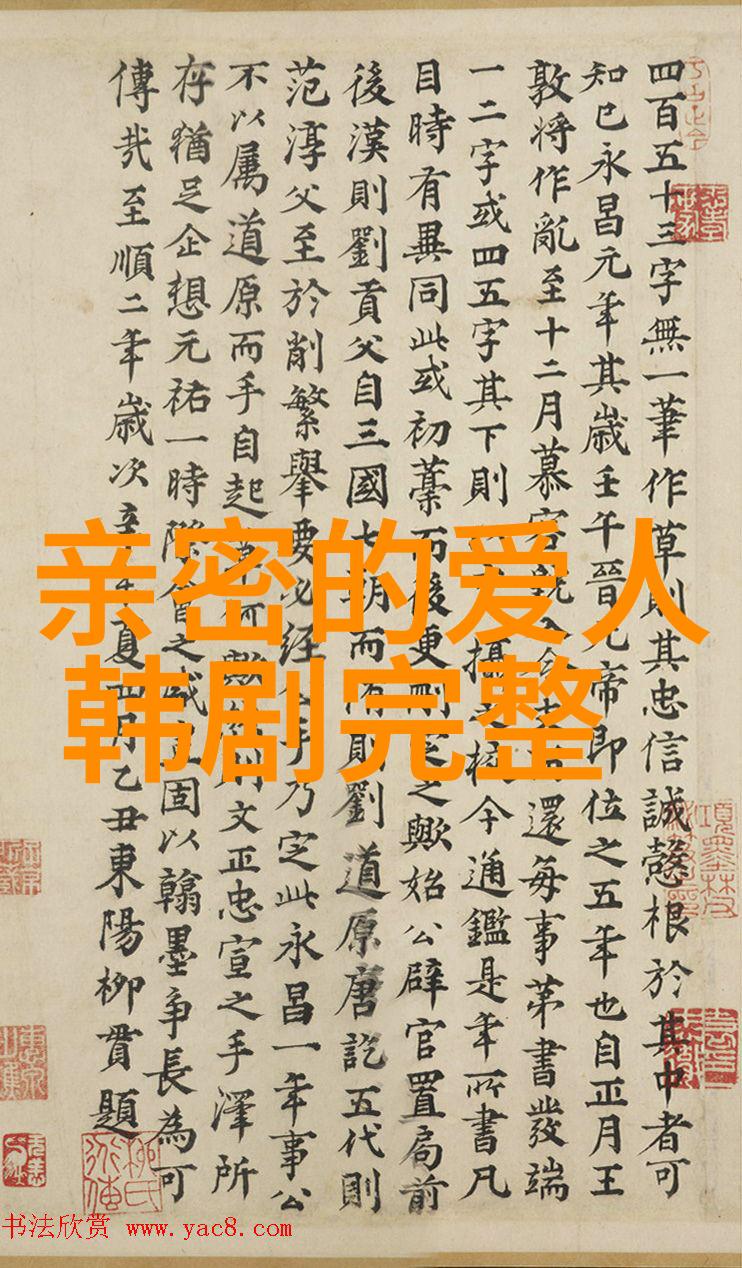 四百五十三字無一筆作草則其忠信誠慤根於其中者可
知已永昌元年其歲壬午晉元帝即位之五年也自正月王
敦將作亂至十二月慕容
還每事第書發端
一二字或四五字其下則以
攝
今通鑑是年所書凡
目時有異同此或初藁而後更刪定之歟始公辟官置局前
後漢則劉貢父自三國七朝而隋則劉道原唐訖五代則
范淳父至於削繁舉要必經公手乃定此永昌一年事公
不以屬道原而手自起草何
則文正忠宣之手澤所
存猶足企想元祐一時際會之盛
固以翰墨爭長為可
傳哉至順二年歲次辛未夏四月乙丑東陽柳貫題
柳氏
亲密的爱人
韩剧完整
书法欣赏 www.yac8.com